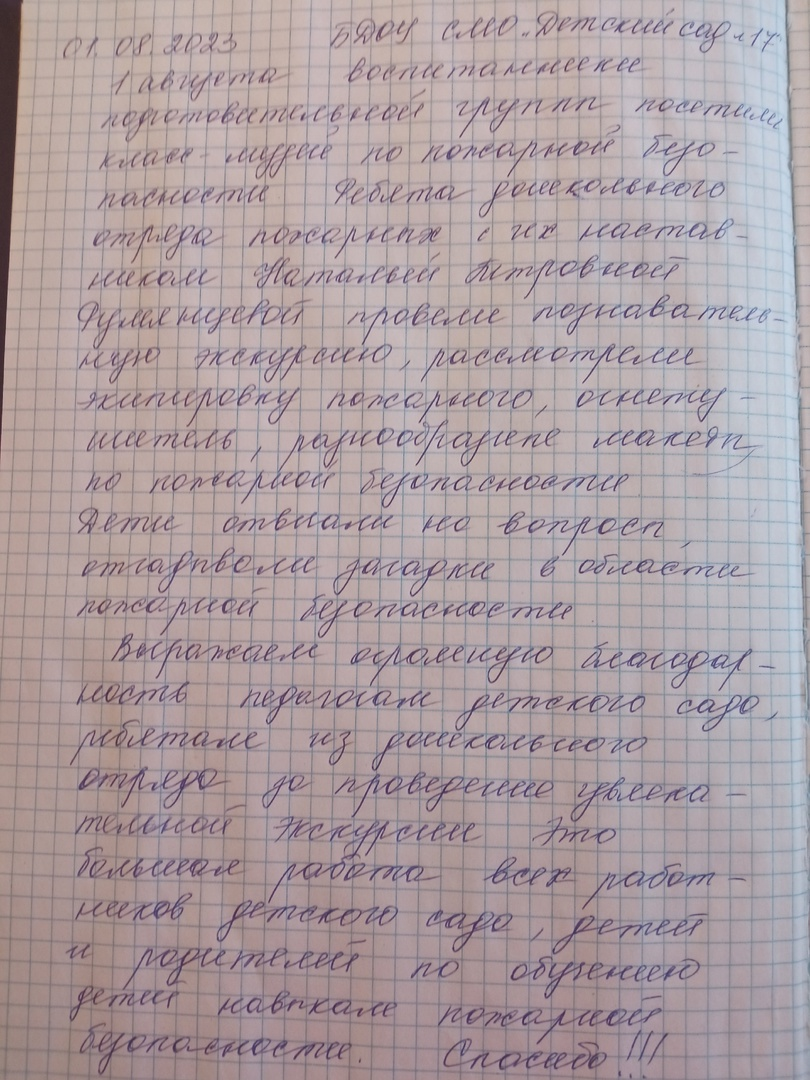 01.08.2023 БДОУ СМО "Детский сад №17"
1 августа воспитанники
подготовительной групп посетили
класс-музей по пожарной безо-
пасности Ребята дошкольного
отряда пожарных с их настав-
ником Натальей Петровной
Румянцевой провели познаватель-
ную экскурсию, рассмотрели
экипировку пожарного, огнету-
шитель, разнообразные макеты
по пожарной безопасности
Дети отвечали на вопросы,
отгадывали загадки в области
пожарной безопасности
Выражаем огромную благодар-
ность педагогам детского сада,
ребятам из дошкольного
отряда за проведение увлека-
тельной экскурсии Это
большая работа всех работ-
ников детского сада, детей
и родителей по обучению
детей навыкам пожарной
безопасности. Спасибо!!!